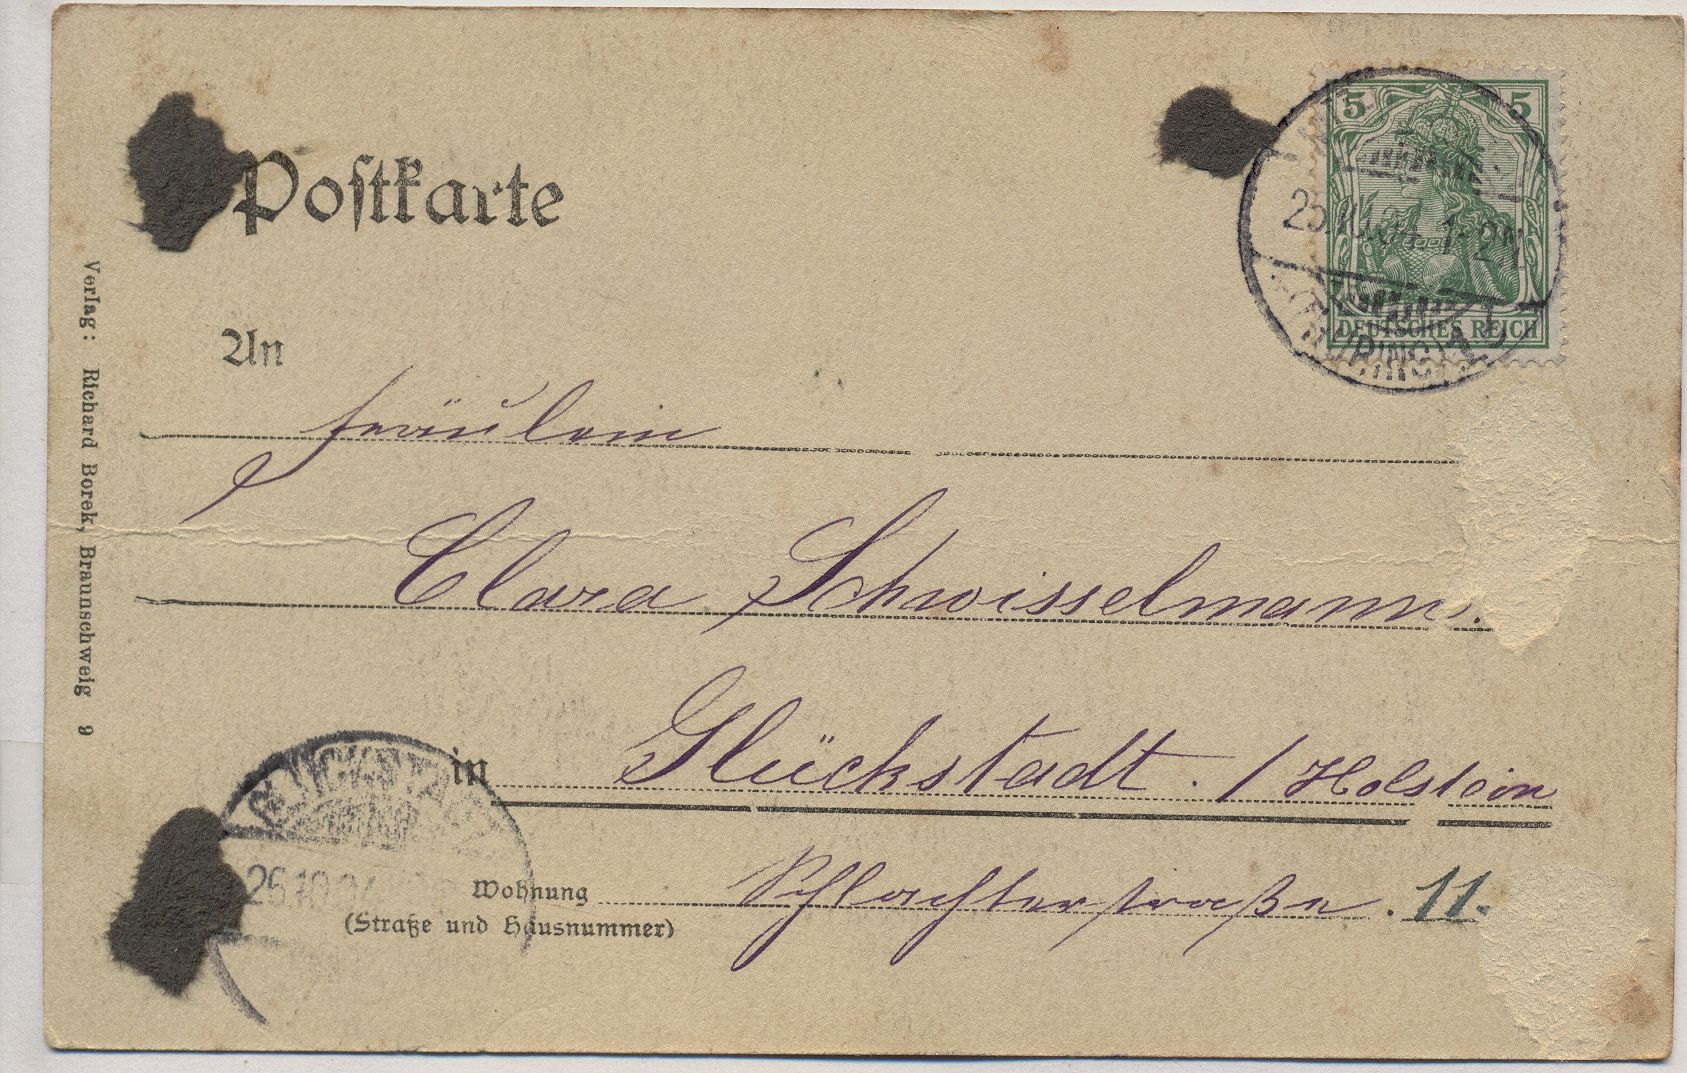 Postkarte
5 5
25.10.04. 1-2N.
DEUTSCHES REICH
(THÜRING)
An
Fräulein
Clara Schwisselmann.
in Glückstadt. / Holstein
GLÜCKSTADT
26.10.04
Wohnung Schlachterstraße. 11.
(Straße und Hausnummer)
Verlag: Richard Borek, Braunschweig 9